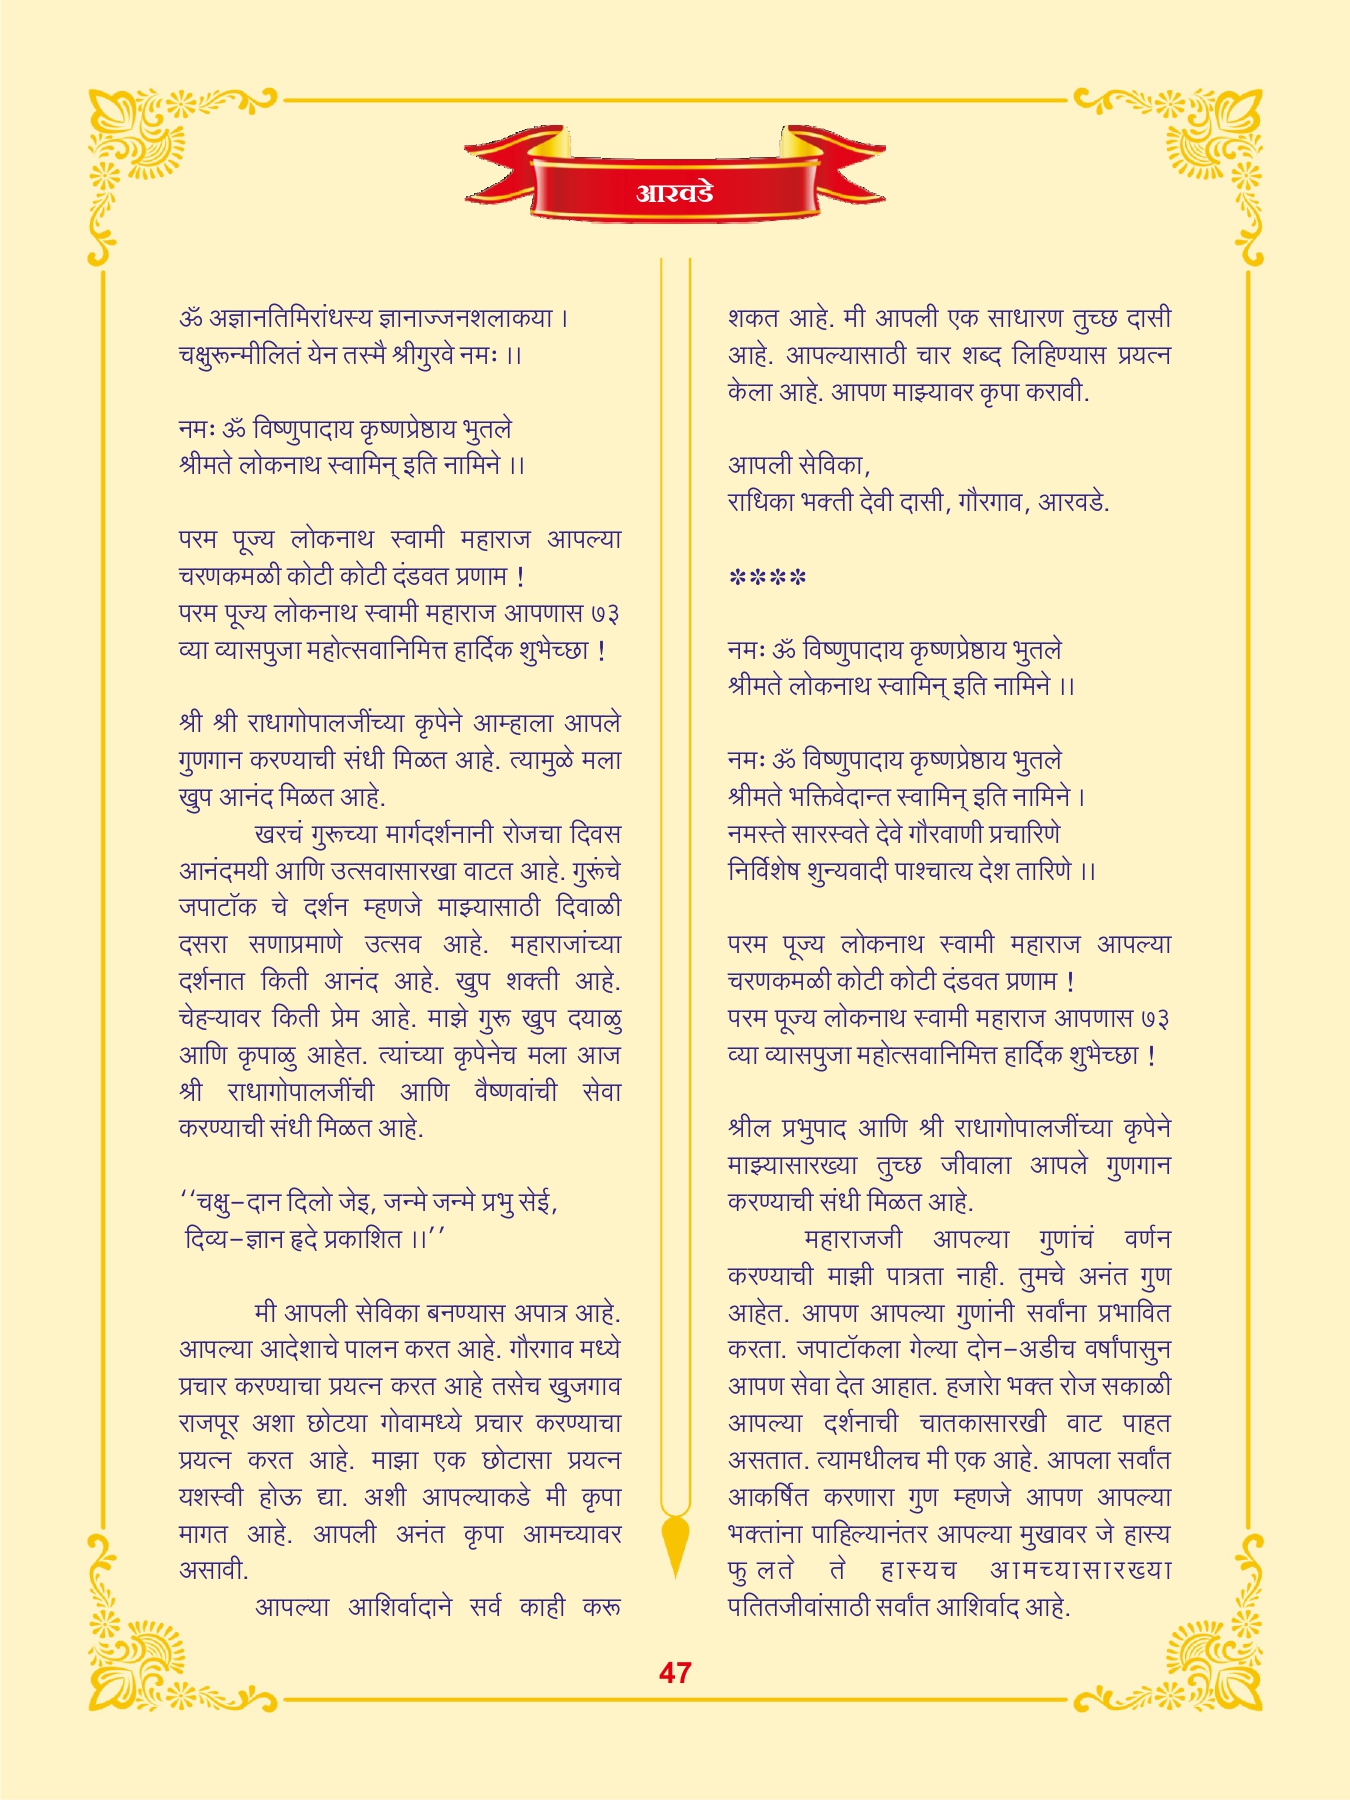 आरवडे
ॐ अज्ञानतिमिरांधस्य ज्ञानाज्जनशलाकया ।
चक्षुरून्मीलितं येन तस्मै श्रीगुरवे नमः ।।
नमः ॐ विष्णुपादाय कृष्णप्रेष्ठाय भुतले
श्रीमते लोकनाथ स्वामिन् इति नामिने ।।
परम पूज्य लोकनाथ स्वामी महाराज आपल्या
चरणकमळी कोटी कोटी दंडवत प्रणाम !
परम पूज्य लोकनाथ स्वामी महाराज आपणास ७३
व्या व्यासपुजा महोत्सवानिमित्त हार्दिक शुभेच्छा !
श्री श्री राधागोपालजींच्या कृपेने आम्हाला आपले
गुणगान करण्याची संधी मिळत आहे. त्यामुळे मला
खुप आनंद मिळत आहे.
खरचं गुरूच्या मार्गदर्शनानी रोजचा दिवस
आनंदमयी आणि उत्सवासारखा वाटत आहे. गुरूंचे
जपाटॉक चे दर्शन म्हणजे माझ्यासाठी दिवाळी
दसरा सणाप्रमाणे उत्सव आहे. महाराजांच्या
दर्शनात किती आनंद आहे. खुप शक्ती आहे.
चेहऱ्यावर किती प्रेम आहे. माझे गुरू खुप दयाळु
आणि कृपाळु आहेत. त्यांच्या कृपेनेच मला आज
श्री राधागोपालजींची आणि वैष्णवांची सेवा
करण्याची संधी मिळत आहे.
‘‘चक्षु–दान दिलो जेइ, जन्मे जन्मे प्रभु सेई,
दिव्य–ज्ञान हृदे प्रकाशित ।।’’
मी आपली सेविका बनण्यास अपात्र आहे.
आपल्या आदेशाचे पालन करत आहे. गौरगाव मध्ये
प्रचार करण्याचा प्रयत्न करत आहे तसेच खुजगाव
राजपूर अशा छोटया गोवामध्ये प्रचार करण्याचा
प्रयत्न करत आहे. माझा एक छोटासा प्रयत्न
यशस्वी होऊ द्या. अशी आपल्याकडे मी कृपा
मागत आहे. आपली अनंत कृपा आमच्यावर
असावी.
आपल्या आशिर्वादाने सर्व काही करू
शकत आहे. मी आपली एक साधारण तुच्छ दासी
आहे. आपल्यासाठी चार शब्द लिहिण्यास प्रयत्न
केला आहे. आपण माझ्यावर कृपा करावी.
आपली सेविका,
राधिका भक्ती देवी दासी, गौरगाव, आरवडे.
✽✽✽✽
नमः ॐ विष्णुपादाय कृष्णप्रेष्ठाय भुतले
श्रीमते लोकनाथ स्वामिन् इति नामिने ।।
नमः ॐ विष्णुपादाय कृष्णप्रेष्ठाय भुतले
श्रीमते भक्तिवेदान्त स्वामिन् इति नामिने ।
नमस्ते सारस्वते देवे गौरवाणी प्रचारिणे
निर्विशेष शुन्यवादी पाश्चात्य देश तारिणे ।।
परम पूज्य लोकनाथ स्वामी महाराज आपल्या
चरणकमळी कोटी कोटी दंडवत प्रणाम !
परम पूज्य लोकनाथ स्वामी महाराज आपणास ७३
व्या व्यासपुजा महोत्सवानिमित्त हार्दिक शुभेच्छा !
श्रील प्रभुपाद आणि श्री राधागोपालजींच्या कृपेने
माझ्यासारख्या तुच्छ जीवाला आपले गुणगान
करण्याची संधी मिळत आहे.
महाराजजी आपल्या गुणांचं वर्णन
करण्याची माझी पात्रता नाही. तुमचे अनंत गुण
आहेत. आपण आपल्या गुणांनी सर्वांना प्रभावित
करता. जपाटॉकला गेल्या दोन–अडीच वर्षांपासुन
आपण सेवा देत आहात. हजारो भक्त रोज सकाळी
आपल्या दर्शनाची चातकासारखी वाट पाहत
असतात. त्यामधीलच मी एक आहे. आपला सर्वांत
आकर्षित करणारा गुण म्हणजे आपण आपल्या
भक्तांना पाहिल्यानंतर आपल्या मुखावर जे हास्य
फु लते ते हास्यच आमच्यासारख्या
पतितजीवांसाठी सर्वांत आशिर्वाद आहे.
47